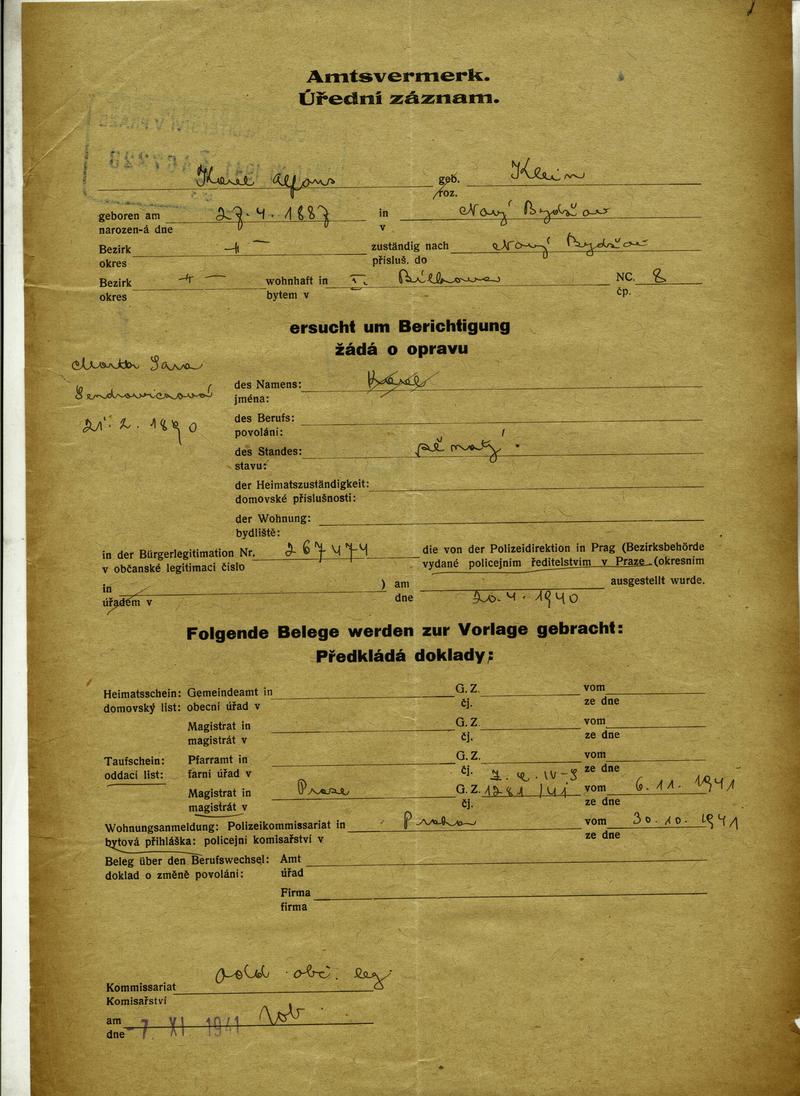 Amtsvermerk.
Úřední záznam.
Alfons geb. Klein
/roz.
geboren am 27.4.1887 in Nový Bydžov
narozen-á dne v
Bezirk zuständig nach Nový Bydžov
okres přísluš. do
Bezirk wohnhaft in NC. 8
okres bytem v čp.
ersucht um Berichtigung
žádá o opravu
des Namens:
jména:
des Berufs:
povolání:
des Standes: ženatý
stavu:
der Heimatszuständigkeit:
domovské příslušnosti:
der Wohnung:
bydliště:
in der Bürgerlegitimation Nr. 267474 die von der Polizeidirektion in Prag (Bezirksbehörde
v občanské legitimaci číslo vydané policejním ředitelstvím v Praze (okresním
in ) am ausgestellt wurde.
úřadem v dne 26.4.1940
Folgende Belege werden zur Vorlage gebracht:
Předkládá doklady:
Heimatsschein: Gemeindeamt in G. Z. vom
domovský list: obecní úřad v čj. ze dne
Magistrat in G. Z. vom
magistrát v čj. ze dne
Taufschein: Pfarramt in G. Z. vom
oddací list: farní úřad v čj. ze dne
Magistrat in G. Z. vom 6.11.1941
magistrát v čj. ze dne
Wohnungsanmeldung: Polizeikommissariat in Praha vom 30.10.1941
bytová přihláška: policejní komisařství v ze dne
Beleg über den Berufswechsel: Amt
doklad o změně povolání: úřad
Firma
firma
obč. leg
Kommissariat
Komisařství
am 7. XI. 1941
dne